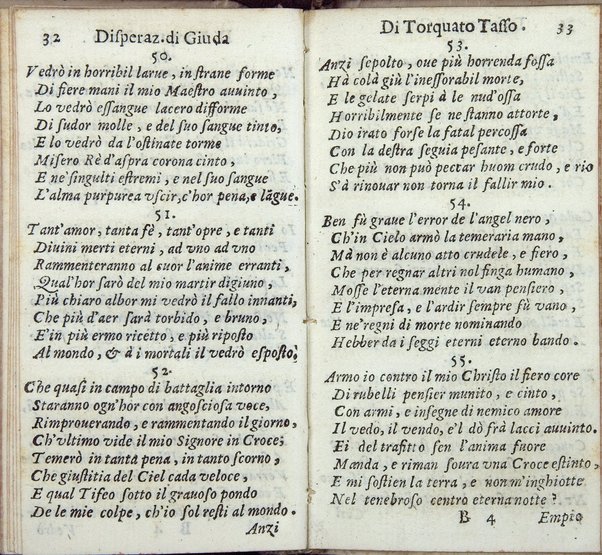 32 Disperaz. di Giuda
50.
Vedrò in horribil larue, in strane forme
Di fiere mani il mio Maestro auuinto,
Lo vedrò essangue lacero difforme
Di sudor molle, e del suo sangue tinto,
E lo vedrò da l'ostinate torme
Misero Rè d'aspra corona cinto,
E ne' singulti estremi, e nel suo sangue
L'alma purpurea vscir, c'hor pena, e lãgue.
51.
Tant'amor, tanta fè, tant'opre, e tanti
Diuini merti eterni, ad vno ad vno
Rammenteranno al cuor l'anime erranti,
Qual'hor sarò del mio martir digiuno,
Più chiaro albor mi vedrò il fallo innanti,
Che più d'aer sarà torbido, e bruno,
E'in più ermo ricetto, e più riposto
Al mondo, & à i mortali il vedrò esposto;
52.
Che quasi in campo di battaglia intorno
Staranno ogn'hor con angosciosa voce,
Rimprouerando, e rammentando il giorno,
Ch'vltimo vide il mio Signore in Croce;
Temerò in tanta pena, in tanto scorno,
Che giustitia del Ciel cada veloce,
E qual Tifeo sotto il grauoso pondo
De le mie colpe, ch'io sol resti al mondo.
Anzi
Di Torquato Tasso. 33
53.
Anzi sepolto, oue più horrenda fossa
Hà colà giù l'inessorabil morte,
E le gelate serpi à le nud'ossa
Horribilmente se ne stanno attorte,
Dio irato forse la fatal percossa
Con la destra seguia pesante, e forte
Che più non può peccar huom crudo, e rio
S'à rinouar non torna il fallir mio.
54.
Ben fù graue l'error de l'angel nero,
Ch'in Cielo armò la temeraria mano,
Mà non è alcuno atto crudele, e fiero,
Che per regnar altri nol finga humano,
Mosse l'eterna mente il van pensiero,
E l'impresa, e l'ardir sempre fù vano,
E ne' regni di morte nominando
Hebber da i seggi eterni eterno bando.
55.
Armo io contro il mio Christo il fiero core
Di rubelli pensier munito, e cinto,
Con armi, e insegne di nemico amore
Il vedo, il vendo, e'l dò frà lacci auuinto.
Ei del trafitto sen l'anima fuore
Manda, e riman soura vna Croce estinto,
E mi sostien la terra, e non m'inghiotte
Nel tenebroso centro eterna notte?
B 4 Empio